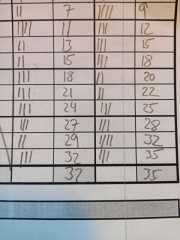 || 7 |||| 9
|||| 11 ||| 12
|| 13 ||| 15
|| 15 ||| 18
||| 18 || 20
||| 21 || 22
||| 24 ||| 25
||| 27 ||| 28
|| 29 |||| 32
||| 32 ||| 35
32 35